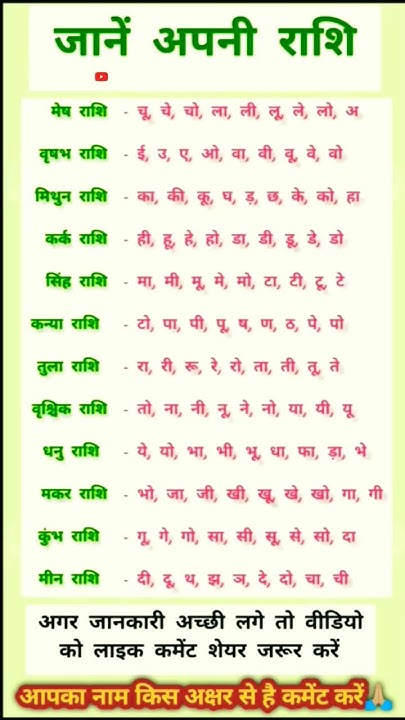 जानें अपनी राशि
मेष राशि - चू, चे, चो, ला, ली, लू, ले, लो, अ
वृषभ राशि - ई, उ, ए, ओ, वा, वी, वू, वे, वो
मिथुन राशि - का, की, कू, घ, ड़, छ, के, को, हा
कर्क राशि - ही, हू, हे, हो, डा, डी, डू, डे, डो
सिंह राशि - मा, मी, मू, मे, मो, टा, टी, टू, टे
कन्या राशि - टो, पा, पी, पू, ष, ण, ठ, पे, पो
तुला राशि - रा, री, रू, रे, रो, ता, ती, तू, ते
वृश्चिक राशि - तो, ना, नी, नू, ने, नो, या, यी, यू
धनु राशि - ये, यो, भा, भी, भू, धा, फा, ड़ा, भे
मकर राशि - भो, जा, जी, खी, खू, खे, खो, गा, गी
कुंभ राशि - गू, गे, गो, सा, सी, सू, से, सो, दा
मीन राशि - दी, दू, थ, झ, ञ, दे, दो, चा, ची
अगर जानकारी अच्छी लगे तो वीडियो
को लाइक कमेंट शेयर जरूर करें
आपका नाम किस अक्षर से है कमेंट करें🙏